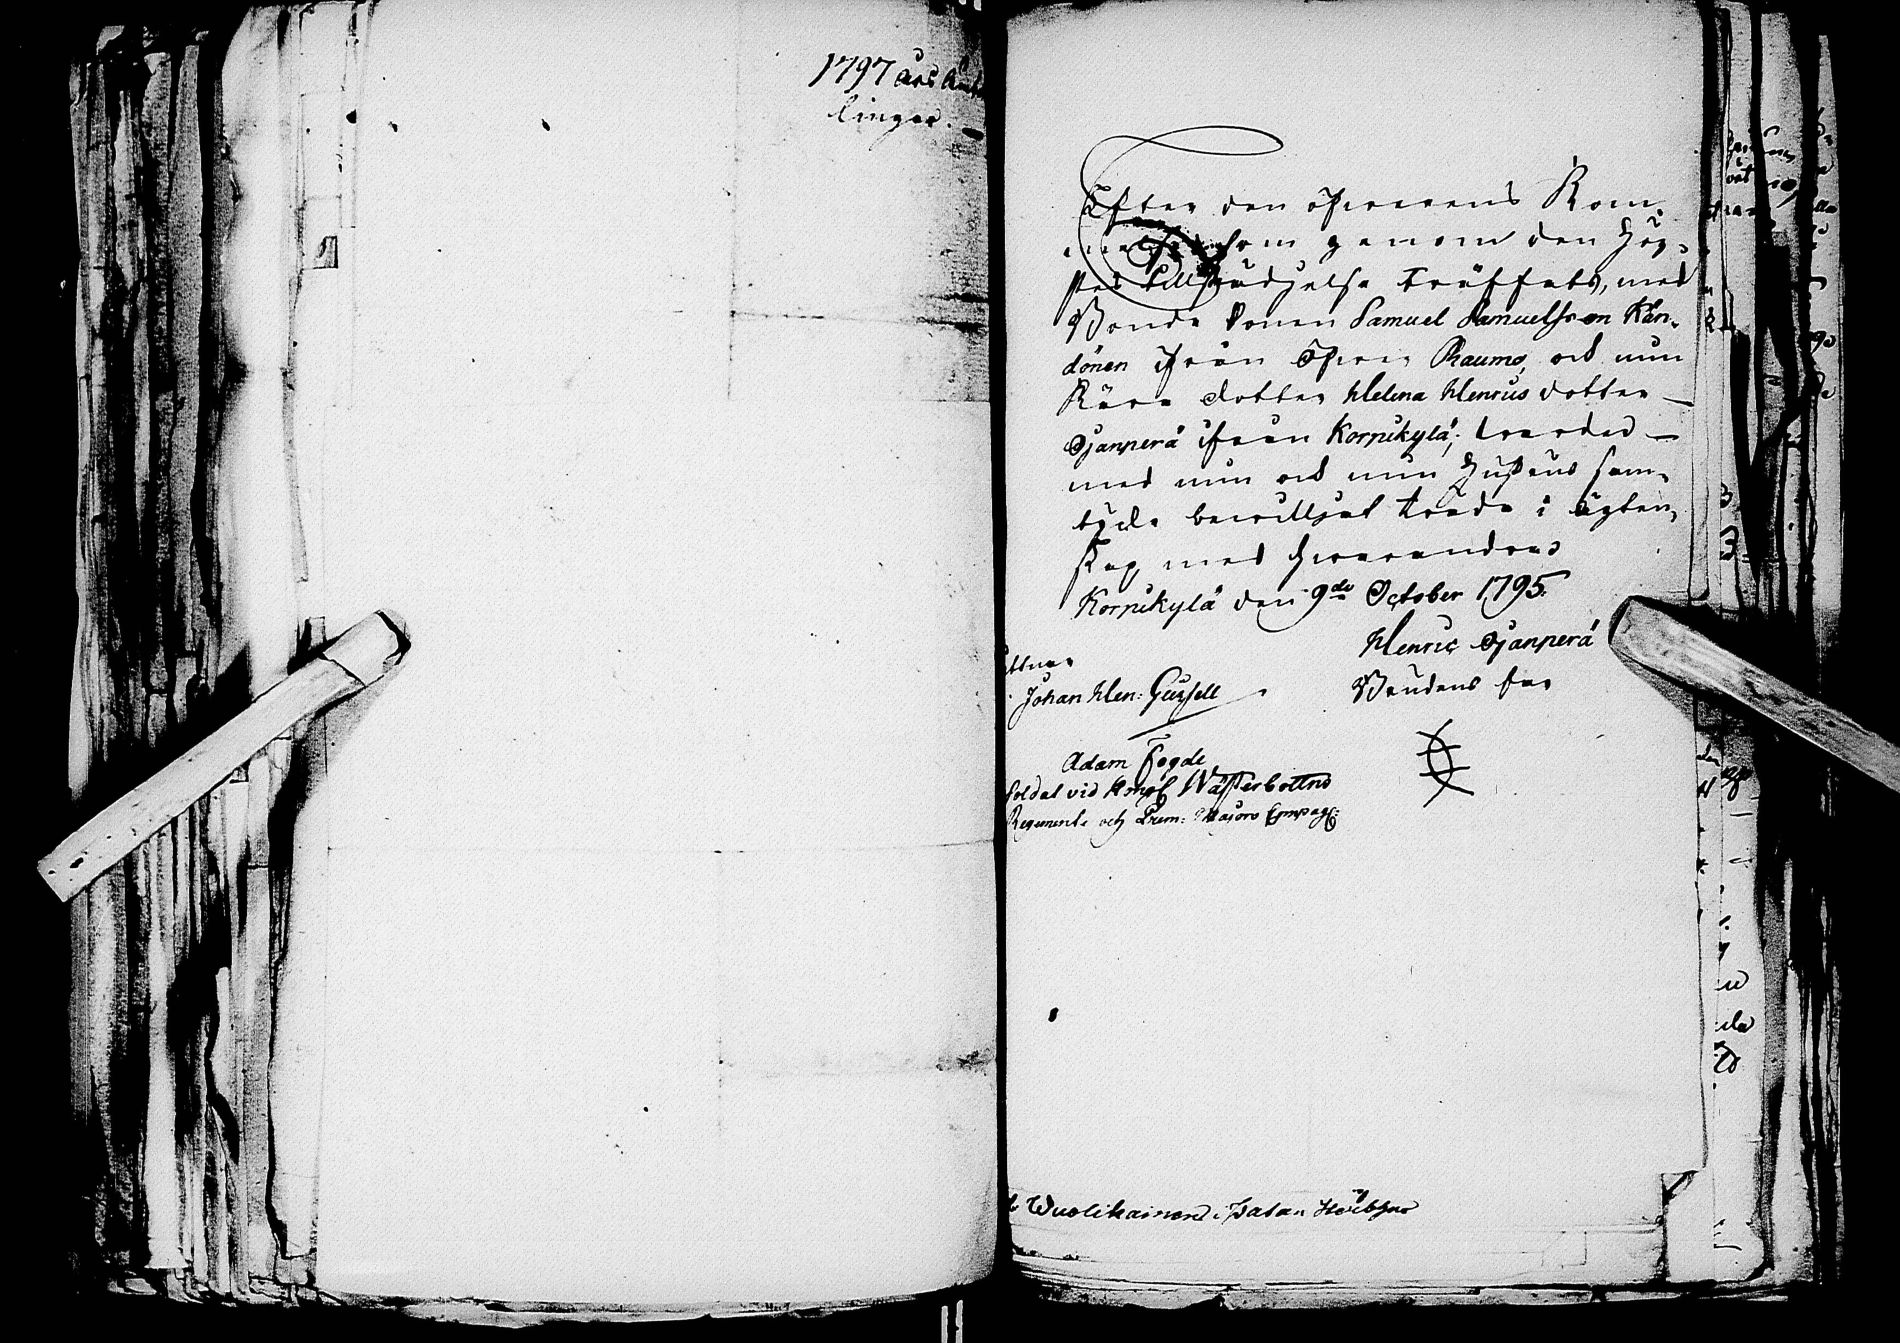 1797 års
linger.
Efter den öfwerens Kom,
melse som genom den Hög-
stes tillstädjelse träffats, med
Bonde Sonen Samuel Samuelsson Kän-
dönen ifrån Öfwer Raumo, och min
Kära dotter Helena Henrics dotter
Djanperä ifrån Korpikylä; warder
med min och min Hustrus sam-
tycke bewilljat träda i ägten,
skap med hwarandra
Korpikylä den 9de October 1795.
Henric Djanperä
Brudens far
ittnar
Johan Hen:
Adam Fogde
Soldat vid Kongl Wästerbottns
Regemente och Prem: Majors Compagn:
Wuolikainen i